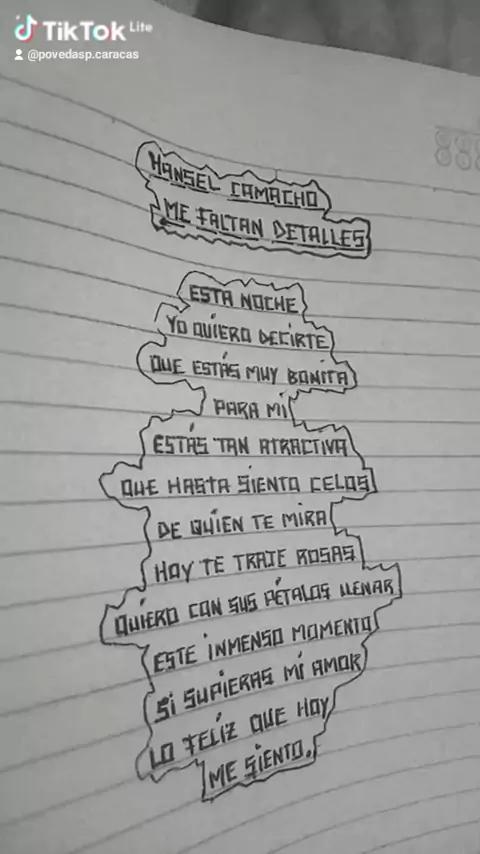 TikTok Lite
@povedasp.caracas
HANSEL CAMACHO
ME FALTAN DETALLES
ESTA NOCHE
YO QUIERO DECIRTE
QUE ESTÁS MUY BONITA
PARA MÍ
ESTÁS TAN ATRACTIVA
QUE HASTA SIENTO CELOS
DE QUIEN TE MIRA
HOY TE TRAJE ROSAS
QUIERO CON SUS PÉTALOS LLENAR
ESTE INMENSO MOMENTO
SI SUPIERAS MI AMOR
LO FELÍZ QUE HOY
ME SIENTO.